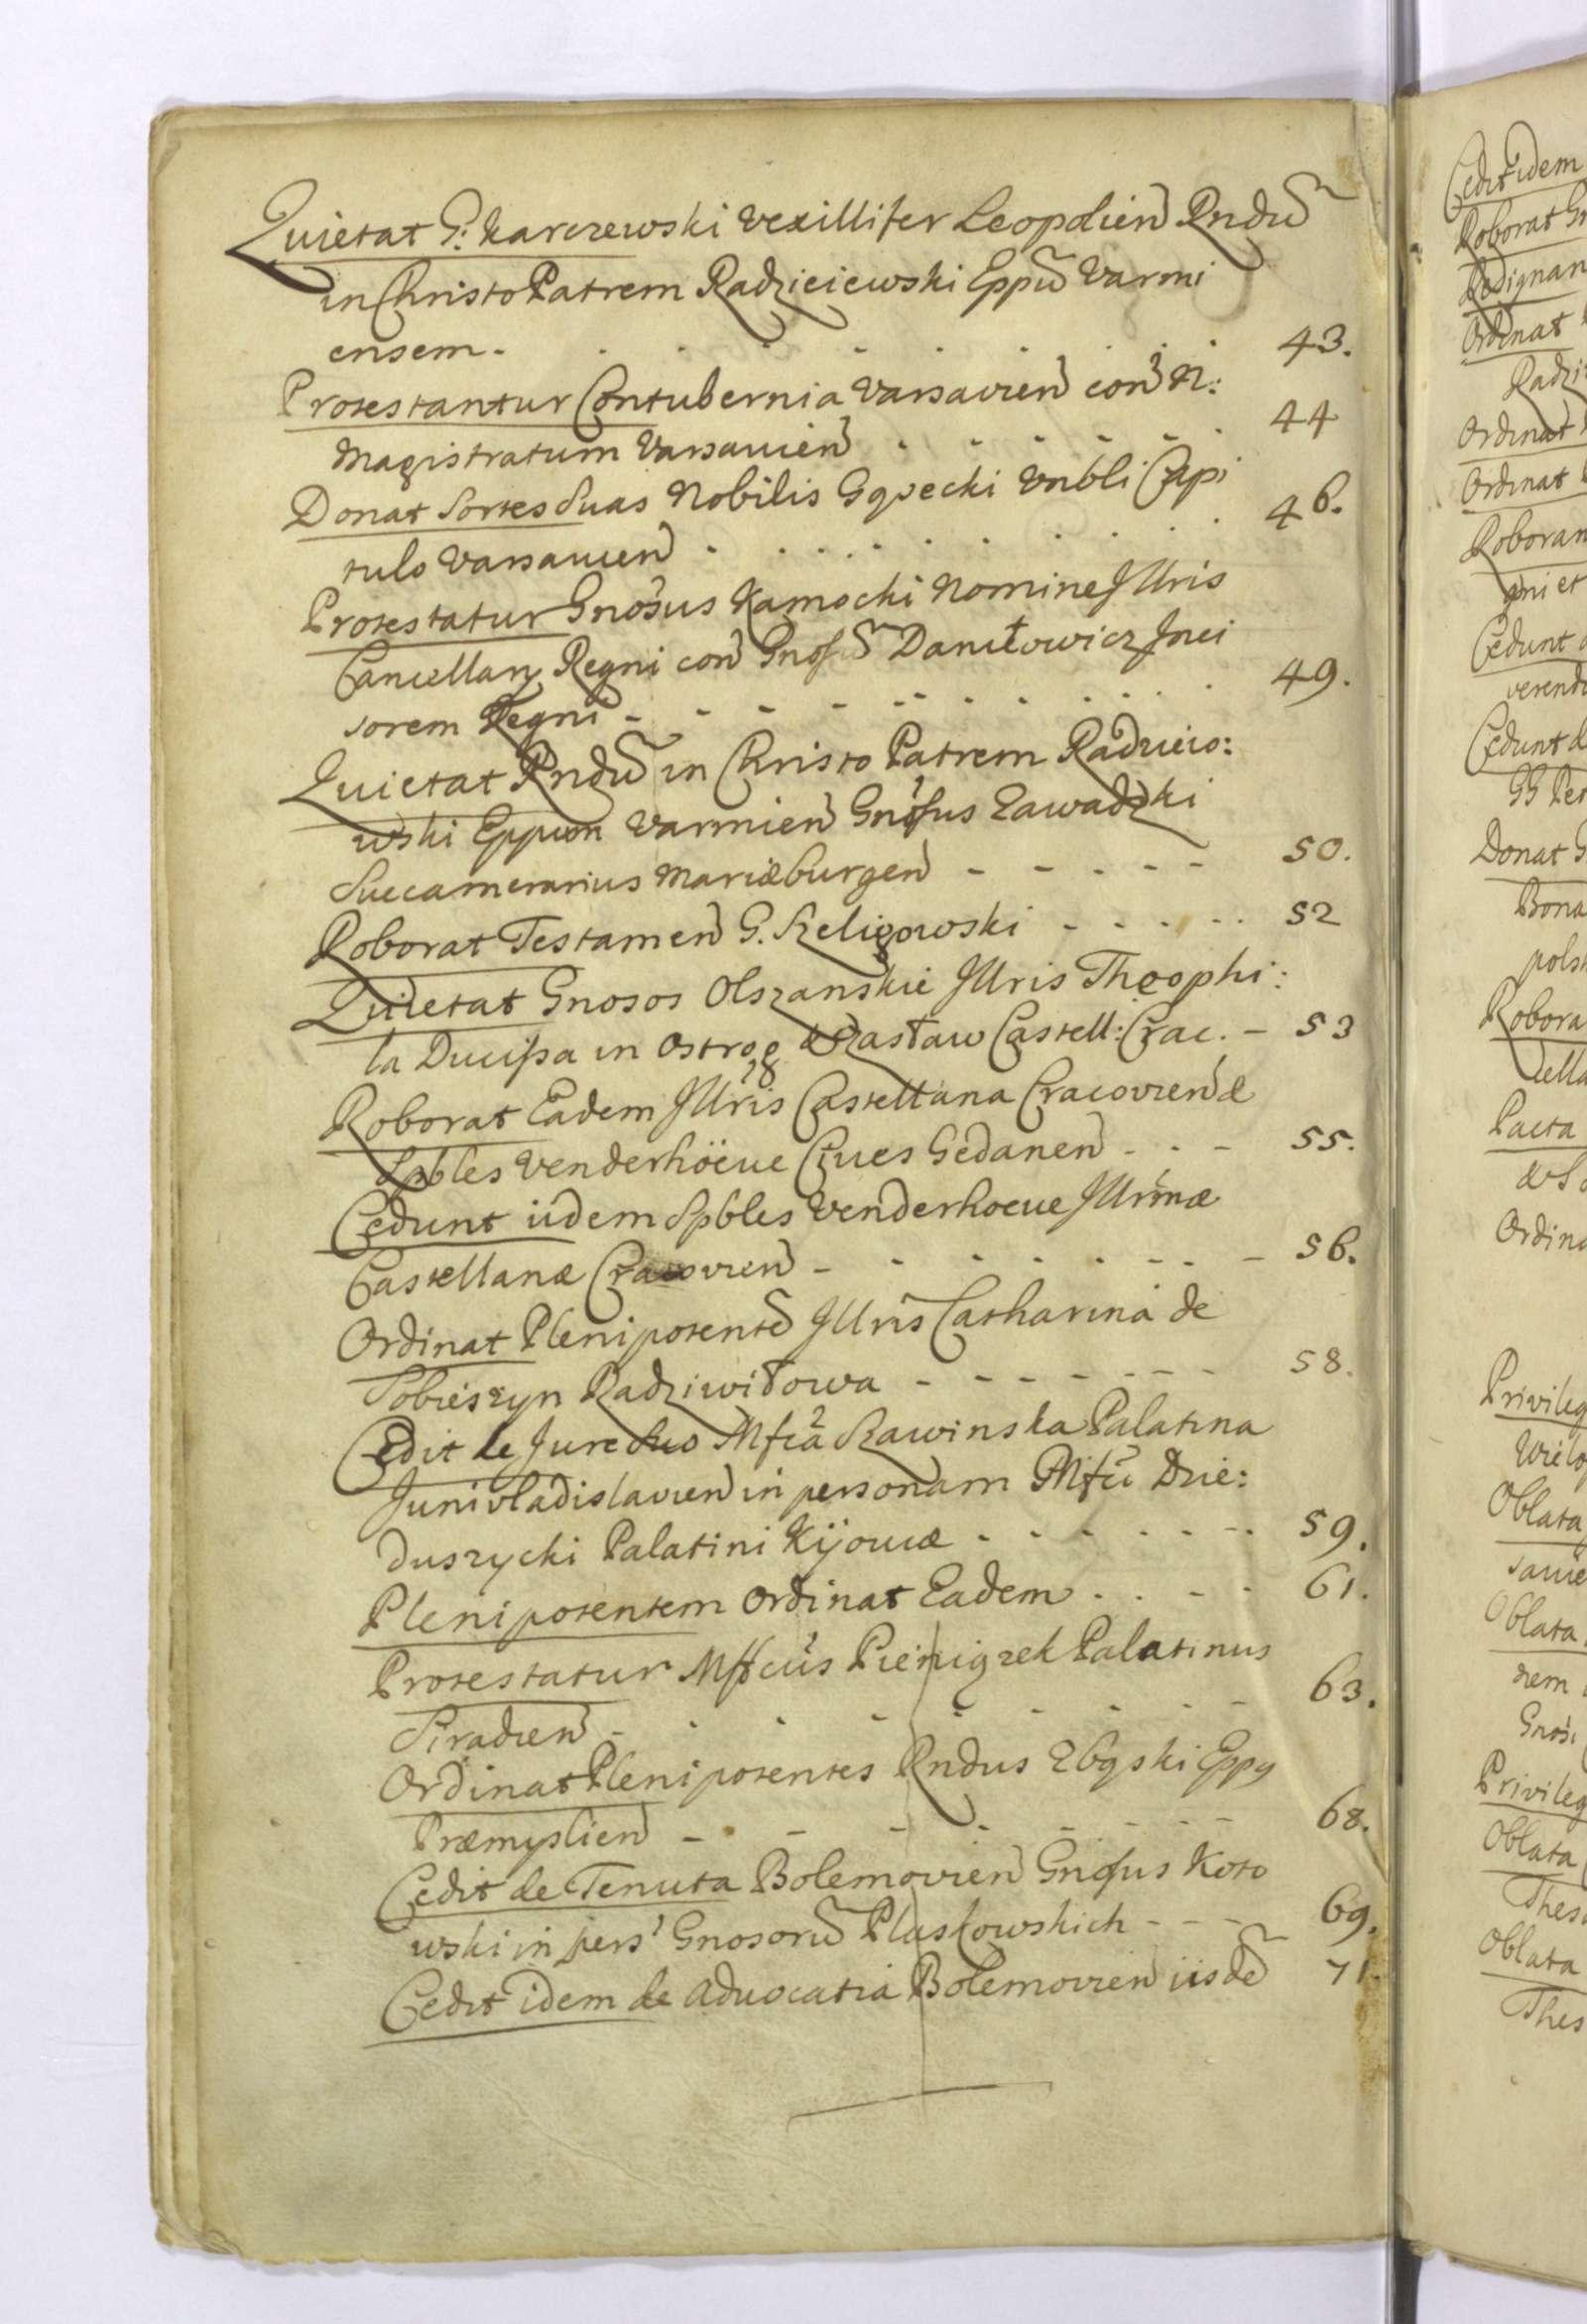 Quietat G: Karczewski Vexillifer Leopolien Rndu
in Christo Patrem Radzieiewski Eppu Varmi
ensem. 43.
Protestantur Contubernia Varsavien con N:
Magistratum Varsavien 44
Donat Sortes Suas Nobilis Gąsecki Vnbli Capi
tulo Varsavien 46.
Protestatur Gnosus Kamocki Nomine Jllris
Cancellarÿ Regni con Gnos Daniłowicz Jnci
sorem Regni 49.
Quietat Rndu in Christo Patrem Radzieio:
wski Eppum Varmien Gnosus Zawadzki
Succamerarius Mariæburgen 50.
Roborat Testamen G. Zeligowski 52
Quietat Gnosos Olszanskie Jllris Theophi:
la Ducissa in Ostrog & Zasław Castell: Crac. 53
Roborat Eadem Jllris Castellana Cracovien &
Spbles Venderhöeue Ciues Gedanen 55.
Cedunt iidem Spbles Venderhoeue Jllrimæ
Castellanæ Cracovien 56.
Ordinat Plenipotente Jllris Catharina de
Sobieszyn Radziwiłowa 58.
Cedit de Jure Suo Mfca Rawinska Palatina
Junivladislavien in personam Mfci Dzie:
duszycki Palatini Kijoviæ 59.
Plenipotentem Ordinat Eadem 61.
Protestatur Mfcus Pieniązek Palatinus
Siradien 63.
Ordinat Plenipotentes Rndus Zbąski Eppg
Præmyslien 68.
Cedit de Tenuta Bolemovien Gnosus Koto
wski in pers Gnosoru Plaskowskich 69.
Cedit idem de Aduocatia Bolemovien iisde 71.
Cedit idem
Roborat Gn
Resignan
Ordinat
Radzi
Ordinat
Ordinat
Roboran
gni et
Cedunt
verend
Cedunt d
GG Per
Donat G
Bona
pols
Robora
Della
Pacta
Ordina
Privileg
Wielo
Oblata
Oblata
nem
Gnosi
Privileg
Oblata
Thes
Oblata
Thes